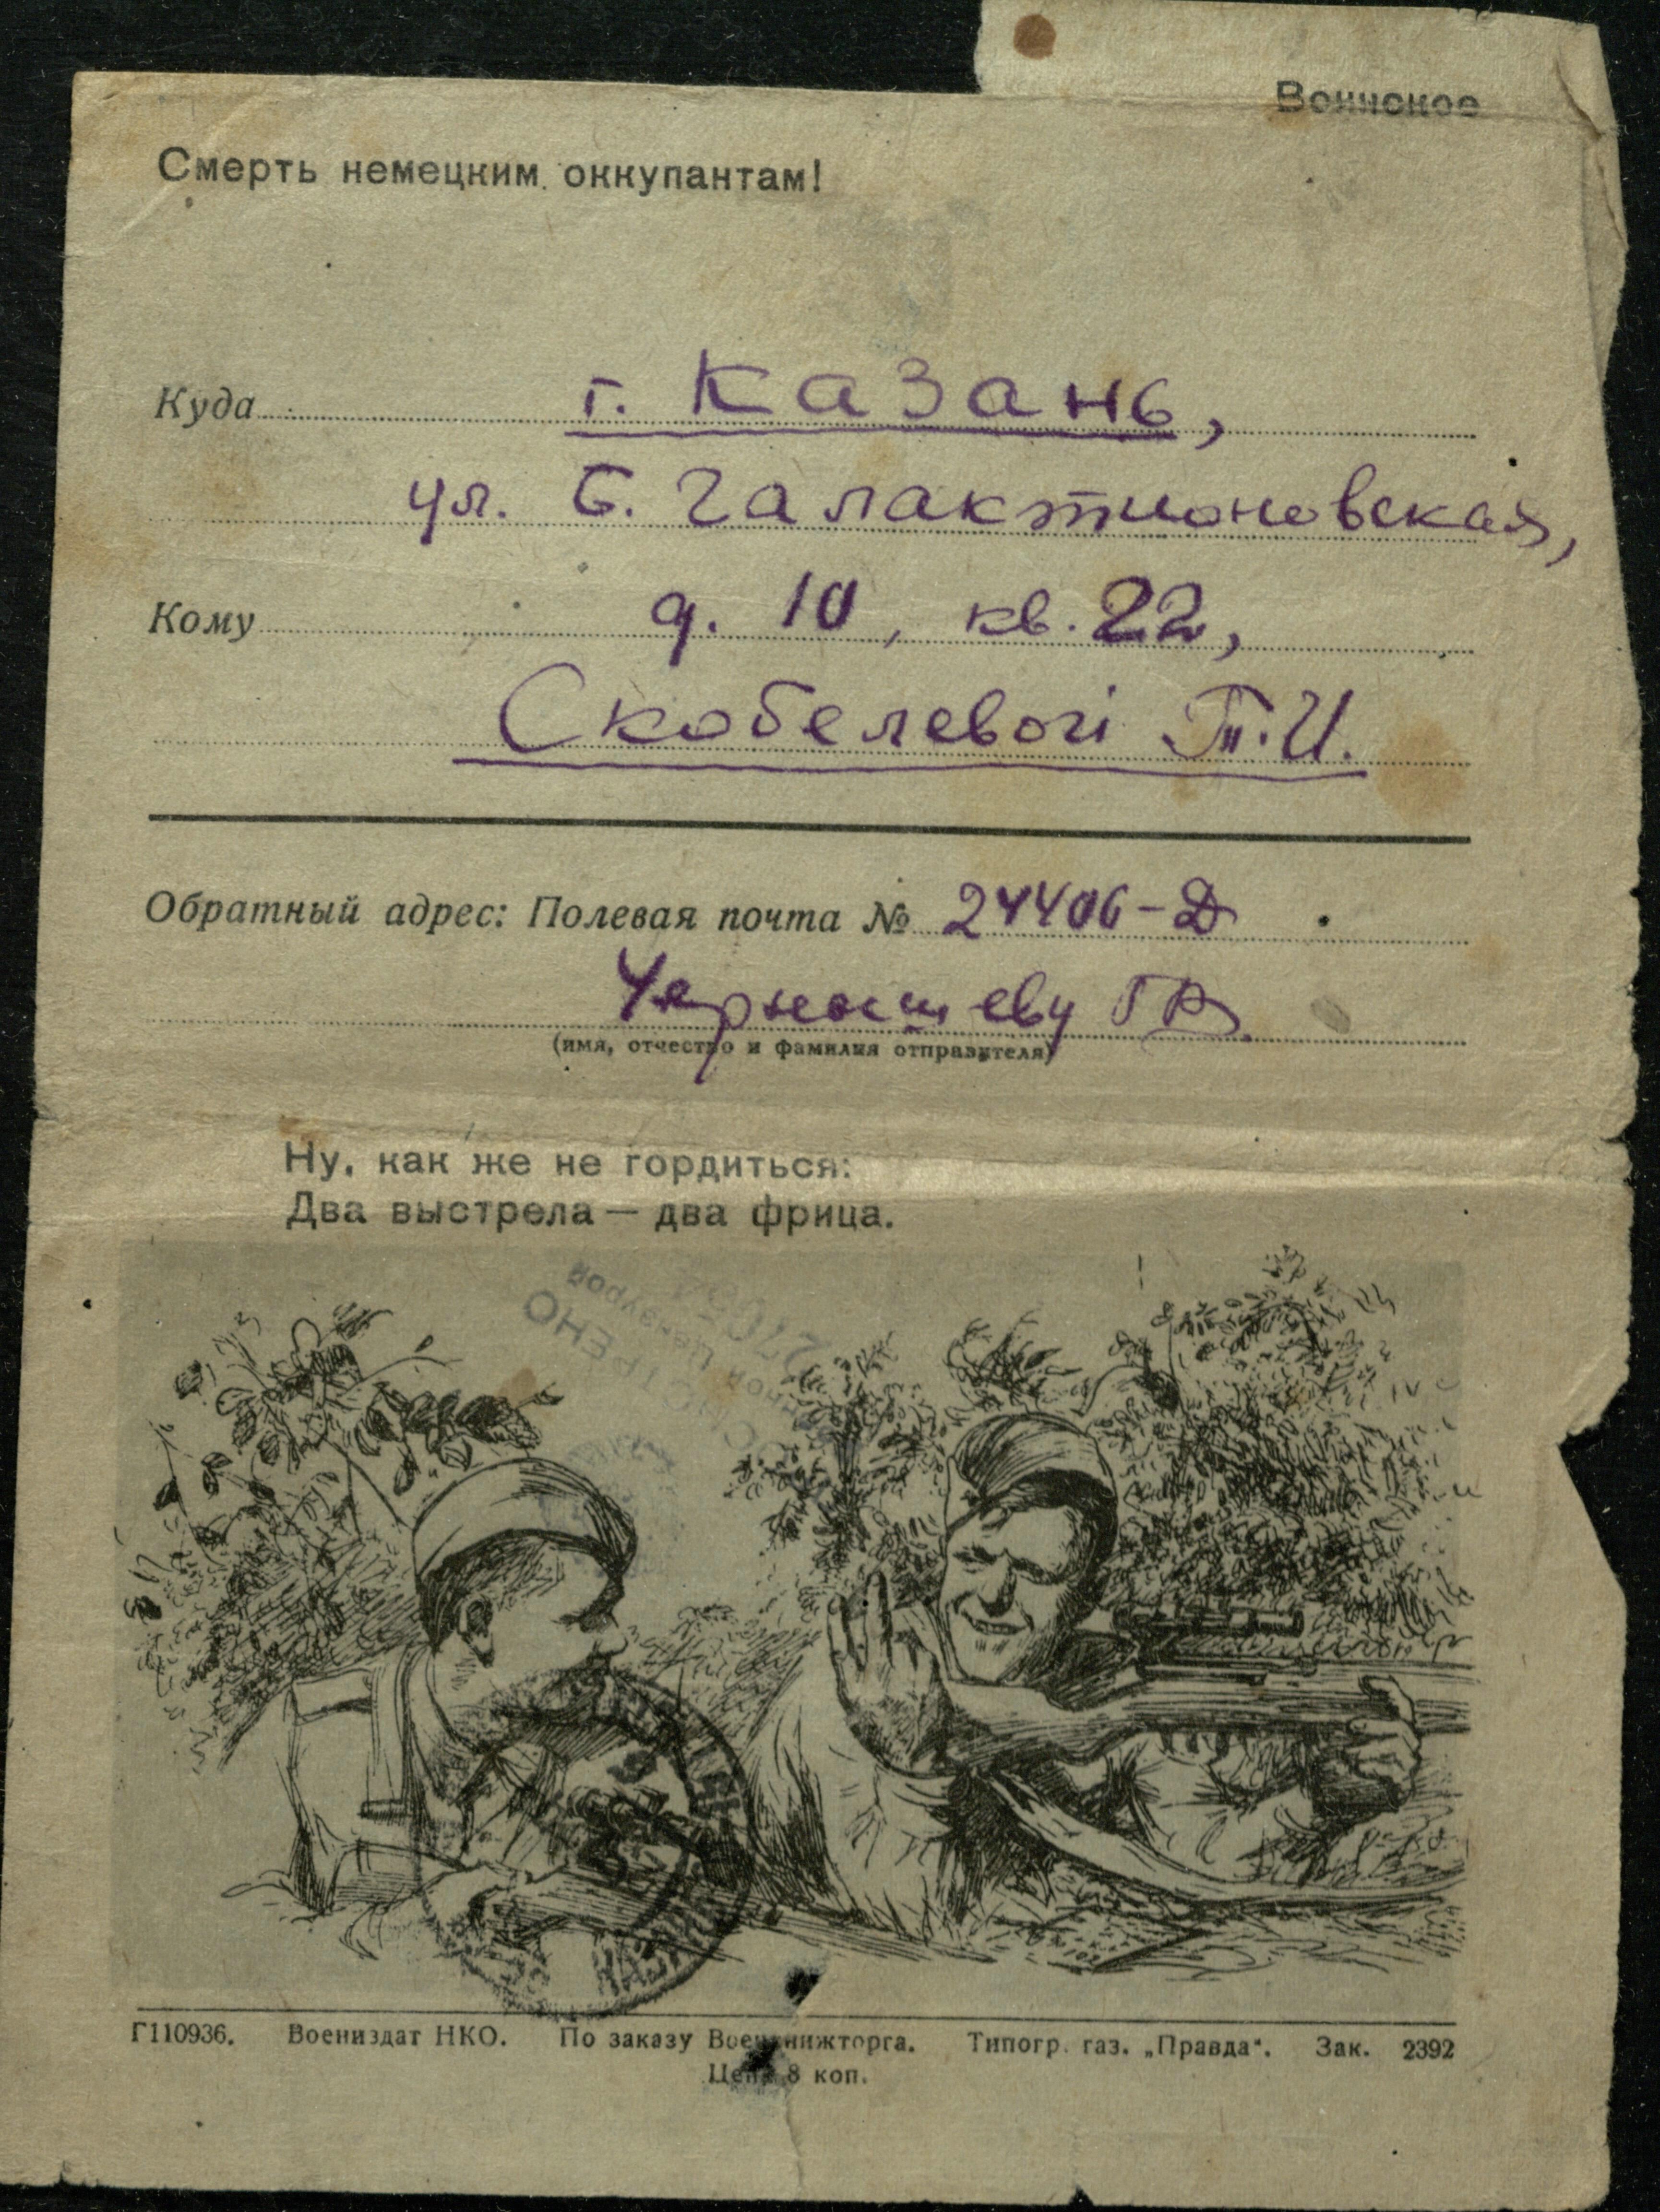 Воинское
Смерть немецким оккупантам!
Куда г. Казань,
ул. Б. Галактионовская,
Кому д. 10, кв. 22,
Скобелевой Т. И.
Обратный адрес: Полевая почта № 24406-Д
Чернышеву Г
(имя, отчество и фамилия отправителя)
Ну, как же не гордиться:
Два выстрела — два фрица.
КАЗАНЬ
Г110936. Воениздат НКО. По заказу Военкнижторга. Типогр. газ. „Правда“. Зак. 2392
Цена 8 коп.